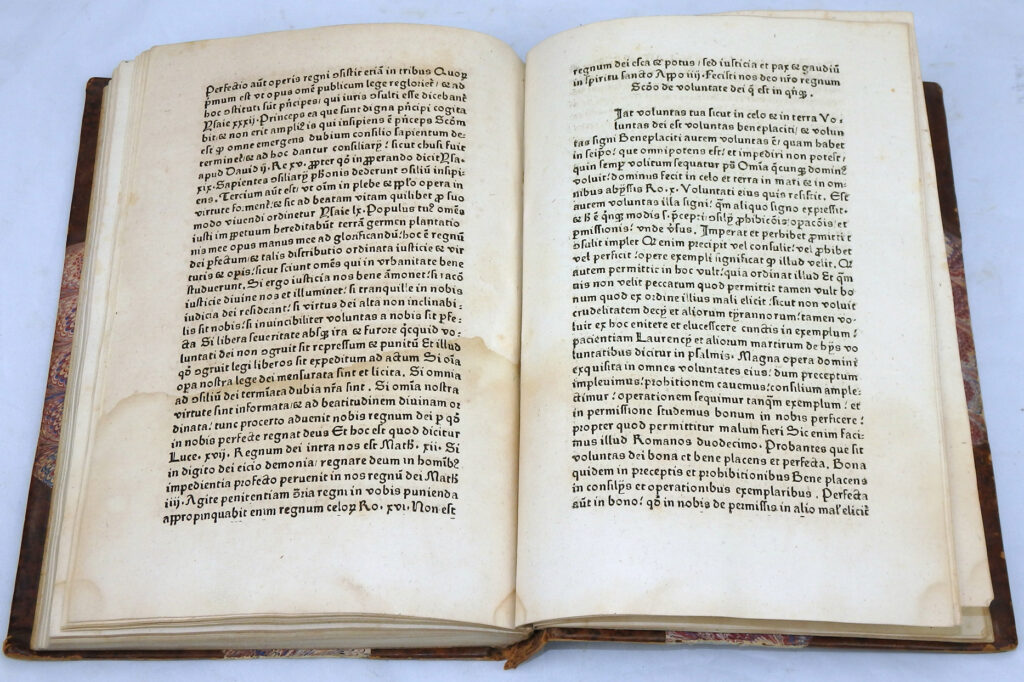 Perfectio aūt operis regni ꝯsistit etiā in tribus Quoꝝ
pͥmum est ut opus omē publicum lege reglorieť ⁊ ad
hoc ꝯstituti sūt pͥncipes/ qui iuris ꝯsulti esse dicebanť
Ysaie xxxij. Princeps ea que sunt digna pͥncipi cogita
bit/⁊ non erit ampliꝰ is qui insipiens ē pͥnceps Scd̄m
est ꝙ omne emergens dubium consilio sapientum de-
termineť/⁊ ad hoc dantur consiliarij/ sicut chusi fuit
apud David ij. Re xv. ꝓpter qd̄ in ꝓperando diciť Ysa.
xix. Sapientes ꝯsiliarij pharaonis dederunt ꝯsiliū insipi-
ens. Tercium aūt est/ ut oīm in plebe ⁊ pp̄lo opera in
virtute fomenť/⁊ sic ad beatam vitam quilibet ꝓ suo
modo vivendi ordinetur Ysaie lx. Populus tuꝰ omēs
iusti im ꝑpetuum hereditabūt terrā germen plantatio
nis mee opus manus mee ad glorificandū/ hoc ē regnū
dei ꝑfectum/⁊ talis distributio ordinata iusticie ⁊ vir
tutis ⁊ opis/ sicut sciunt omēs qui in vrbanitate bene
studuerunt. Si ergo iusticia nos bene āmonet/ si racō
iusticie diuine nos et illuminet/ si tranquille in nobis
iudicia dei resideant/ si virtus dei alta non inclinabi-
lis sit nobis/ si inuincibiliter voluntas a nobis sit ꝑfe-
cta Si libera seueritate absqꝫ ira ⁊ furore qͥcquid vo-
luntati dei non ꝯgruit sit repressum ⁊ punitū Et illud
qd̄ ꝯgruit legi liberos sit expeditum ad actum Si oīa
opa nostra lege dei mensurata sint et licita. Si omnia
ad ꝯsiliū dei termīata dubia nr̄a sint. Si omīa nostra
virtute sint informata/⁊ ad beatitudinem divinam or
dinata/ tunc procerto aduenit nobis regnum dei ꝑ qd̄
in nobis perfecte regnat deus Et hoc est quod dicitur
Luce. xvij. Regnum dei intra nos est Math. xij. Si
in digito dei eicio demonia/ regnare deum in homībꝫ
impedientia profecto peruenit in nos regnū dei Math
iiij. Agite penitentiam ōria regni in vobis punienda
appropinquabit enim regnum celoꝝ Ro. xvi. Non est
regnum dei esca ⁊ potus/ sed iusticia et pax ⁊ gaudiū
in spiritu sancto Appo iiij. Fecisti nos deo nr̄o regnum
Scd̄o de voluntate dei q̄ est in qͥnqꝫ.
Iat voluntas tua sicut in celo ⁊ in terra Vo-
luntas dei est voluntas beneplaciti/ ⁊ volun
tas signi Beneplaciti autem voluntas ē/ quam habet
in seip̄o/ que omnipotens est/ et impediri non potest/
quin semꝑ volitum sequatur ps̄ Omīa qͤcunqꝫ dominꝰ
voluit/ dominus fecit in celo et terra in mari ⁊ in om-
nibus abyssis Ro. x. Voluntati eius quis resistit. Est
autem voluntas illa signi/ qm̄ aliquo signo expressit.
⁊ h̄ ē qͥnqꝫ modis s. p̄cepti/ ꝯsilij/ ꝓhibicōis/ opacōis et
ꝑmissionis/ vnde v̄sus. Imperat et perhibet ꝑmittit ꝯ
ꝯsulit implet Qꝛ enim precipit vel consulit/ vel ꝓhibet
vel perficit/ opere exempli significat ꝙ illud velit. Qꝛ
autem permittit in hoc vult/ quia ordinat illud Et qm̄
nis non velit peccatum quod permittit tamen vult bo
num quod ex ordine illius mali elicit/ sicut non voluit
crudelitatem decij et aliorum tyrannorum/ tamen vo-
luit ex hoc enitere et elucescere cunctis in exemplum/
pacientiam Laurencij et aliorum martirum de hijs vo
luntatibus dicitur in psalmis. Magna opera domini
exquisita in omnes voluntates eius/ dum preceptum
impleuimus/ prohitionem cauemus/ consilium ample-
ctimur/ operationem sequimur tanqͣm exemplum/ et
in permissione studemus bonum in nobis perficere/
propter quod permittitur malum fieri Sic enim faci-
mus illud Romanos duodecimo. Probantes que sit
voluntas dei bona et bene placens et perfecta. Bona
quidem in preceptis et prohibitionibus Bene placens
in consilijs et operationibus exemplaribus. Perfecta
aūt in bono/ qd̄ in nobis de permissis in alio mal' elicit